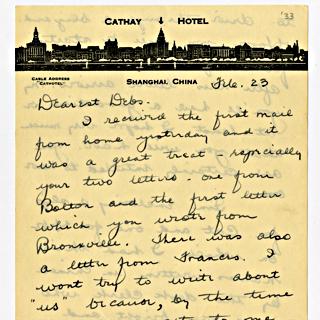 '33
CATHAY HOTEL
CABLE ADDRESS
"CATHOTEL"
SHANGHAI, CHINA
Feb. 23
Dearest Debs.
I received the first mail
from home yesterday and it
was a great treat - especially
your two letters - one from
Boston and the first letter
which you wrote from
Bronxville. There was also
a letter from Frances. I
wont try to write about
"us" because, by the time
to me